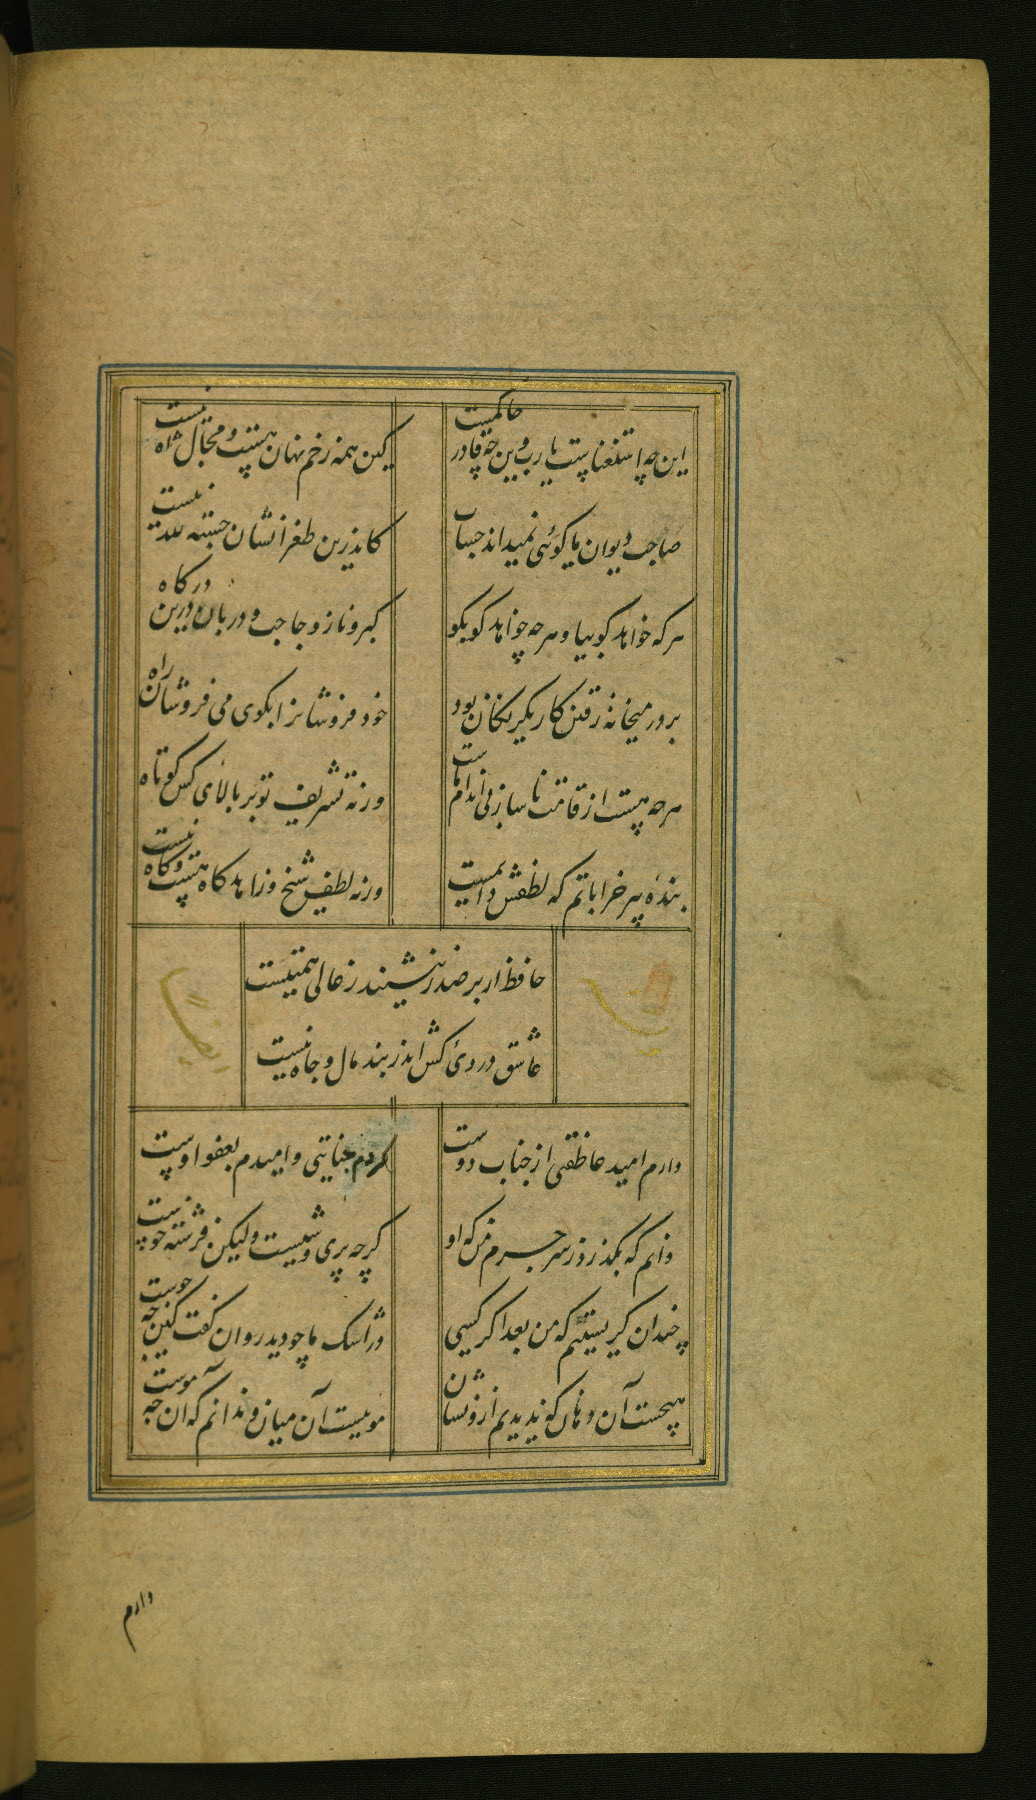 این چه استغناست یا رب وین چه قادر حاکمیست
کین همه زخم نهان هست و مجال آه نیست
صاحب دیوان ما گوئی نمیداند حساب
کاندرین طغرا نشان حسبة لله نیست
هر که خواهد کو بیا و هر چه خواهد کو بکو
کبر و ناز و حاجب و دربان درین درکاه
بر در میخانه رفتن کار یکرنگان بود
خود فروشانرا بکوی می فروشان راه
هر چه هست از قامت ناساز بی اندام ماست
ورنه تشریف تو بر بالای کس کوتاه نیست
بنده پیر خراباتم که لطفش دایمست
ورنه لطف شیخ و زاهد کاه هست و کاه
حافظ ار بر صدر ننشیند ز عالی همتیست
عاشق دردی کش اندر بند مال و جاه نیست
دارم امید عاطفتی از جناب دوست
کردم جنایتی و امیدم بعفو اوست
دانم که بگذرد ز سر جرم من که او
کرچه پری وشیست ولیکن فرشته خوست
چندان کریستیم که من بعد اکر کسی
در اشک ما چو دید روان گفت کین چه جوست
هیچست آن دهان که ندیدیم ازو نشان
مویست آن میان و ندانم که آن چه موست
دارم